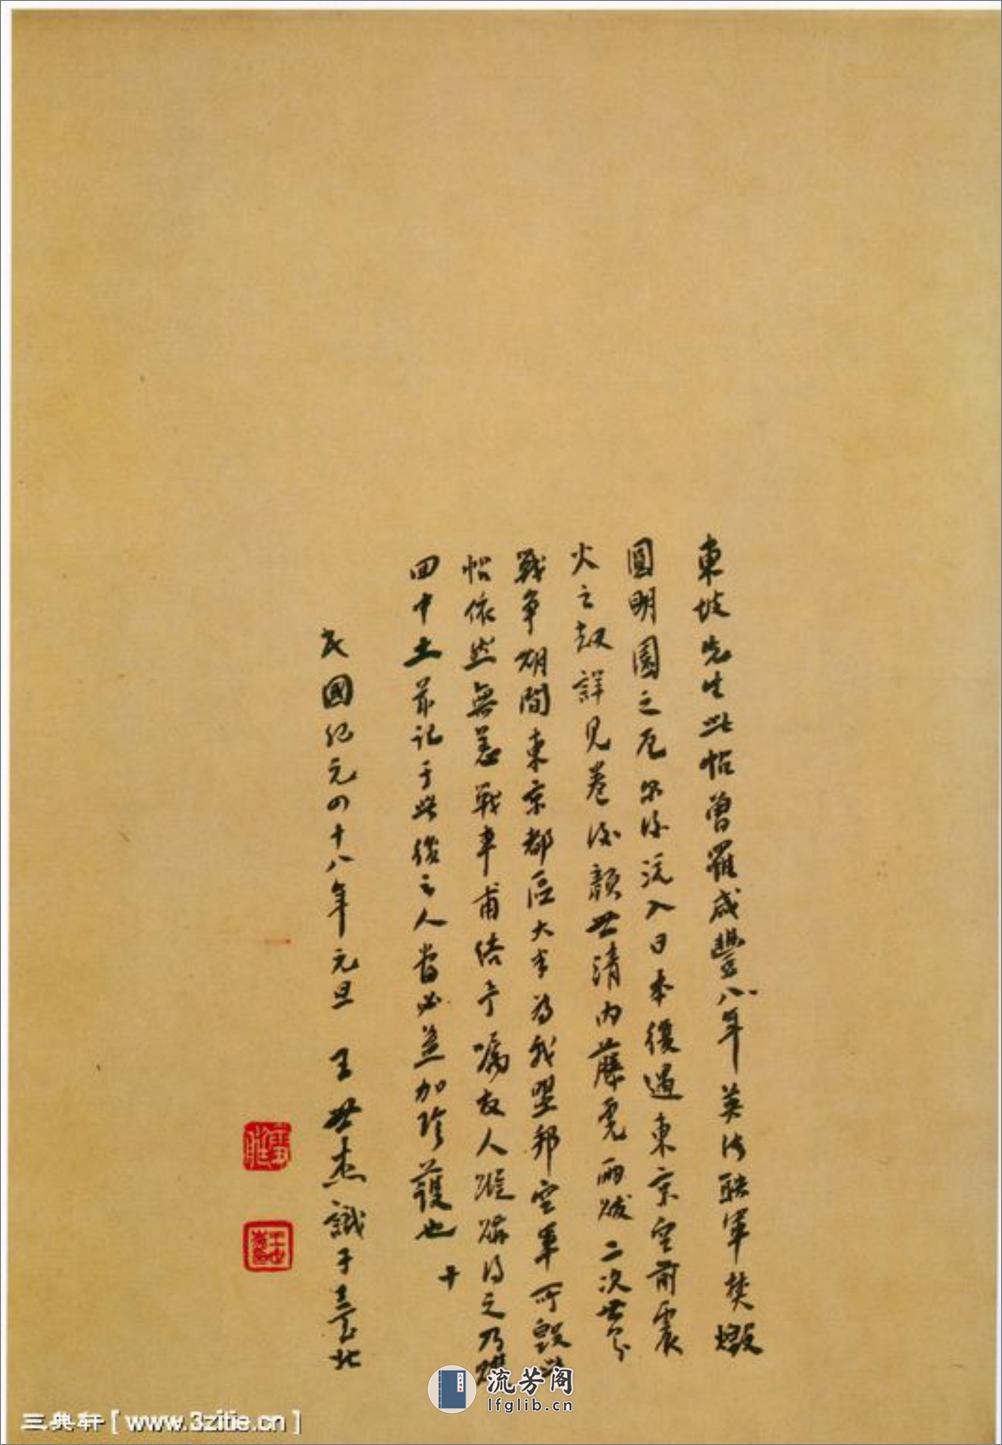 東坡先生此帖曾羅咸豐八年英法聯軍焚燬
圓明園之厄尔後流入日本復遇東京空前震
火之劫詳見卷後顏世清內藤虎兩跋二次世界
戰爭期間東京都區大半為我盟邦空軍所毀此
帖依然無恙戰事甫結予囑友人蹤跡得之乃購
回中土并記于此後之人當必益加珍護也
十
民國紀元四十八年元旦 王世杰識于臺北
雪艇
王世杰
流芳阁
lfglib.cn
三典轩[www.3zitie.cn]